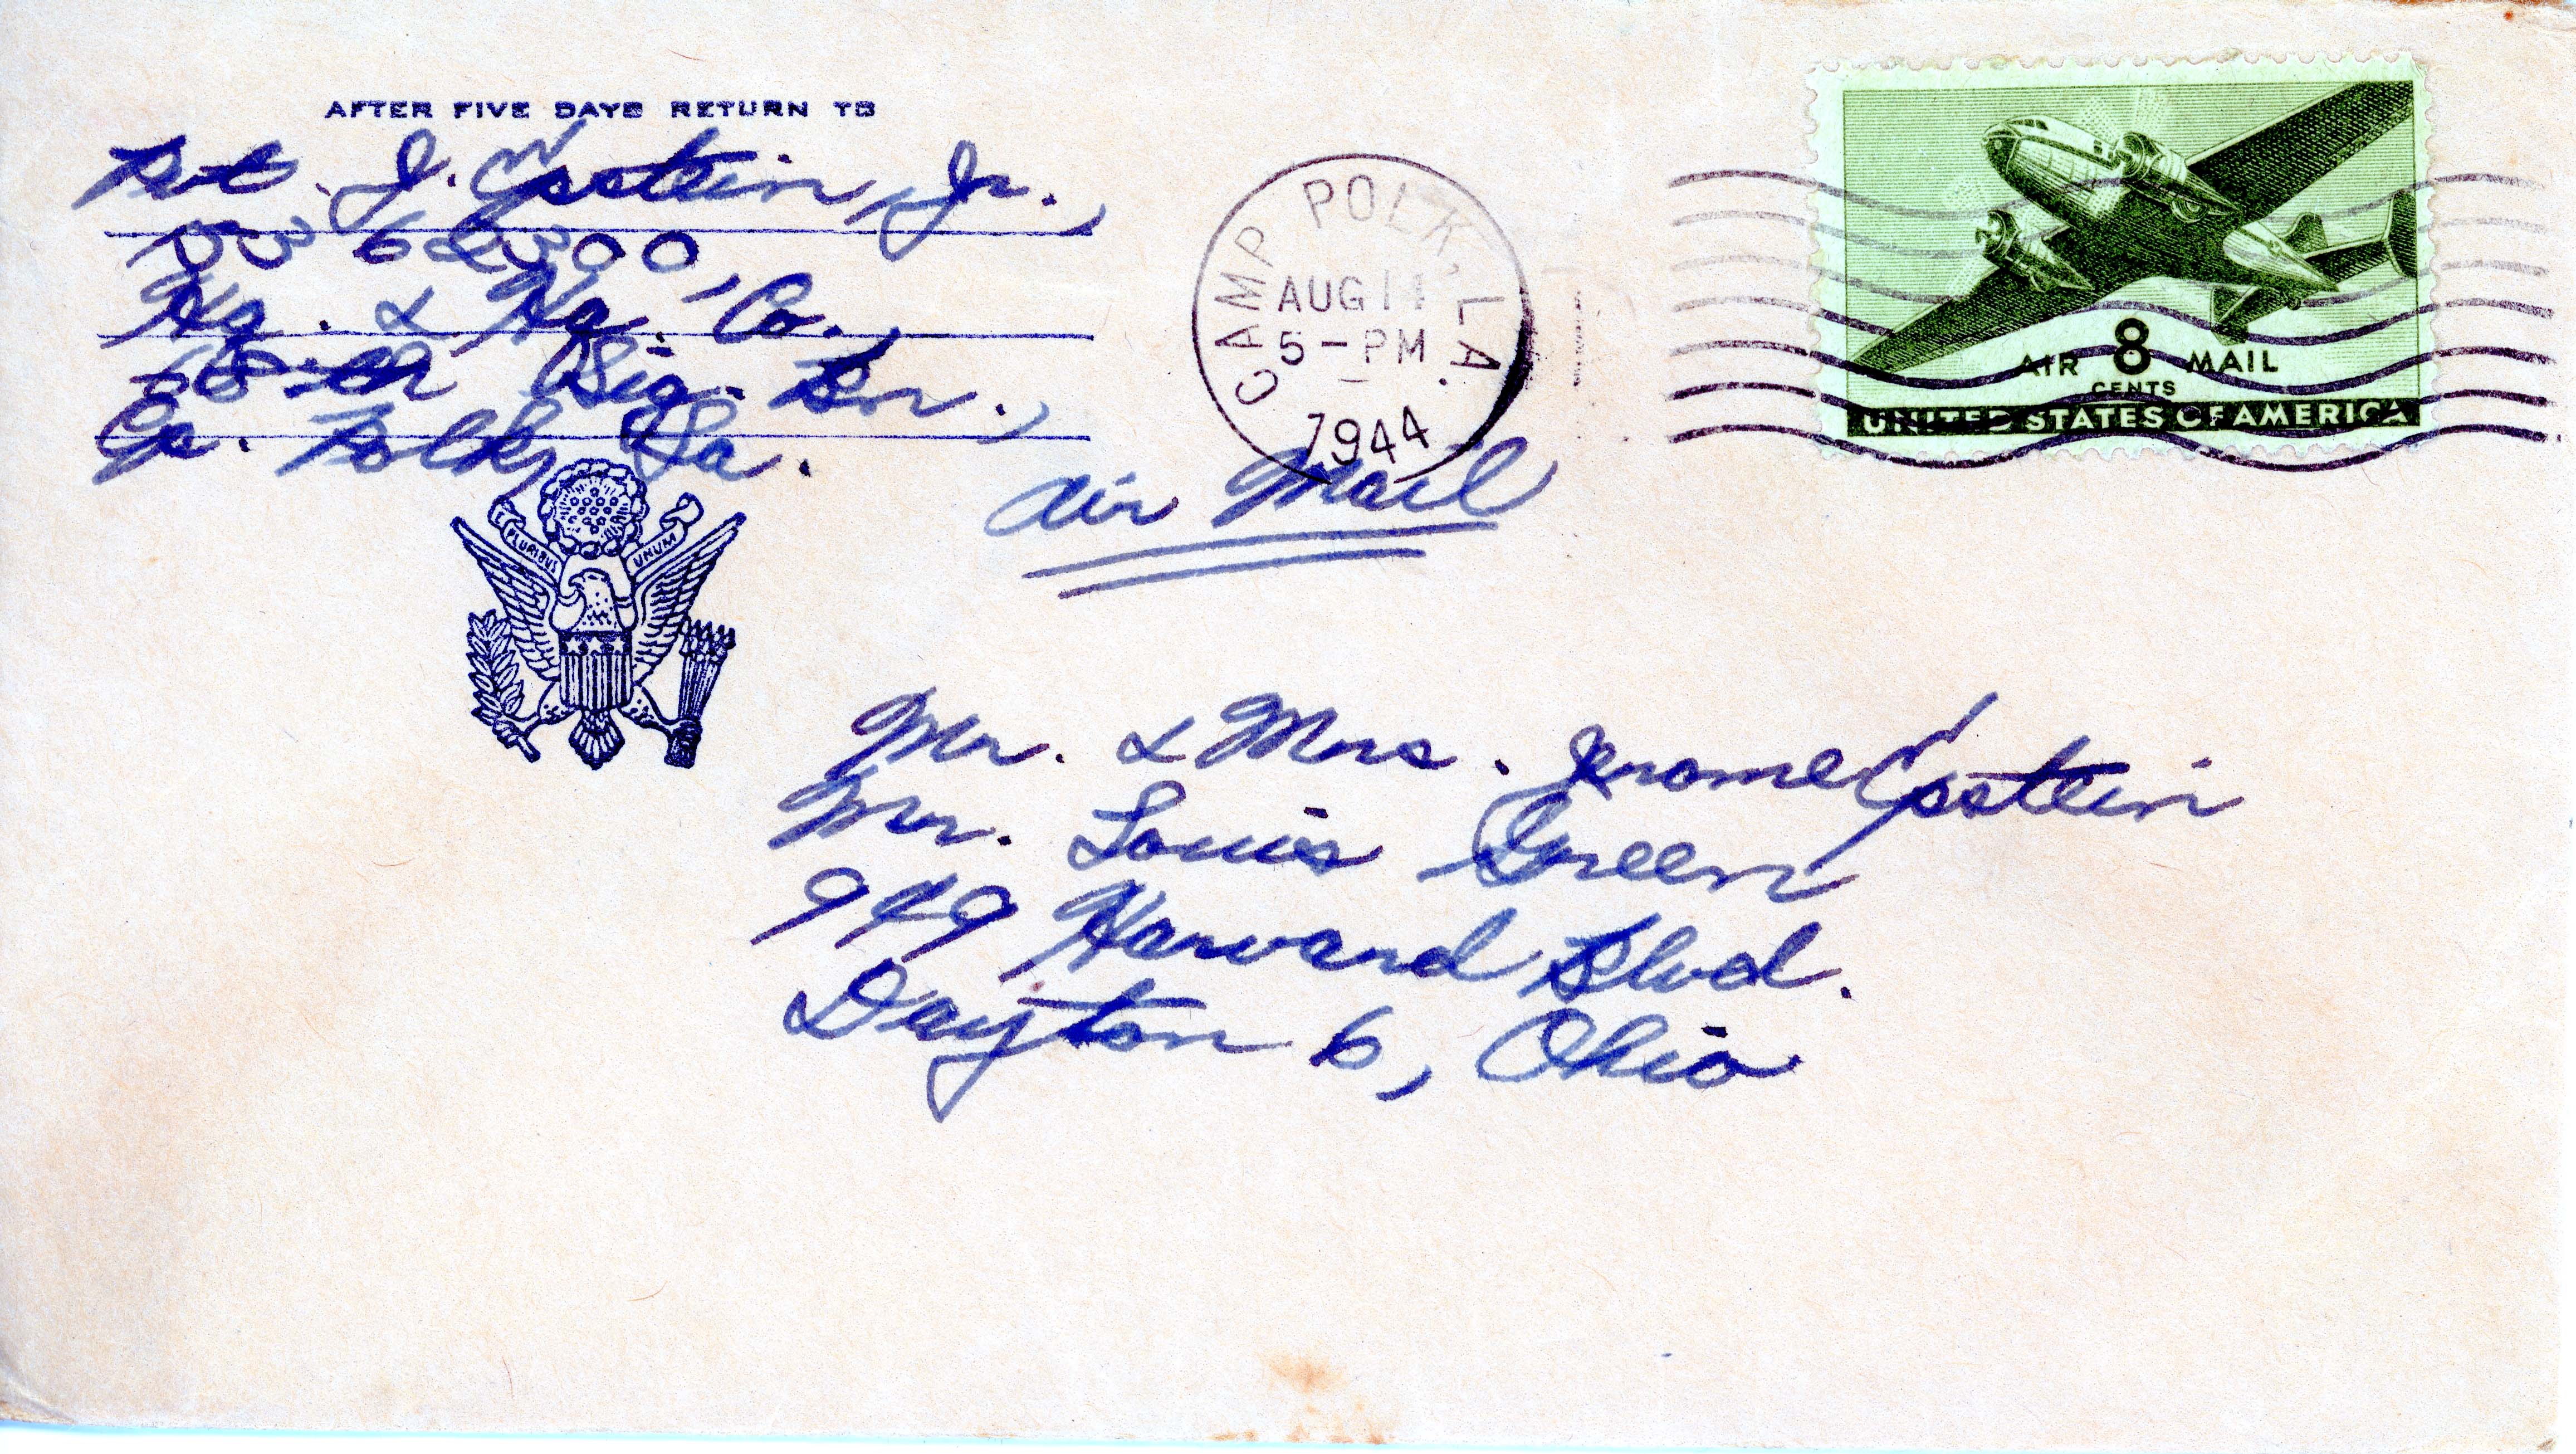 AFTER FIVE DAYS RETURN TO
Pvt. J. Epstein, Jr.,
Hq. & Hq. Co.,
68th Sig. Bn.,
Cp. Polk, La.
PLURIBUS UNUM
CAMP POLK, LA.
AUG 11
5-PM
1944
AIR 8 MAIL
CENTS
UNITED STATES OF AMERICA
Air Mail
Mr. & Mrs. Jerome Epstein
Mr. Louis Green
949 Harvard Blvd.
Dayton 6, Ohio